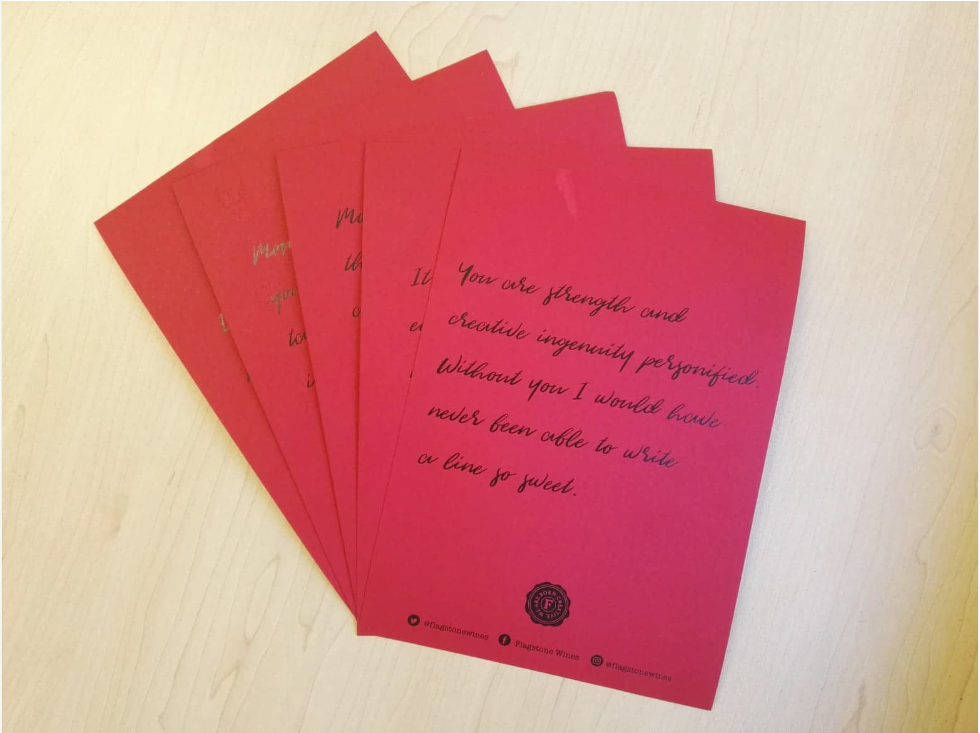 You are strength and
creative ingenuity personified.
Without you I would have
never been able to write
a line so sweet.
WE ARE BORN CREATIVE
F
@flagstonewines
Flagstone Wines
@flagstonewines
It